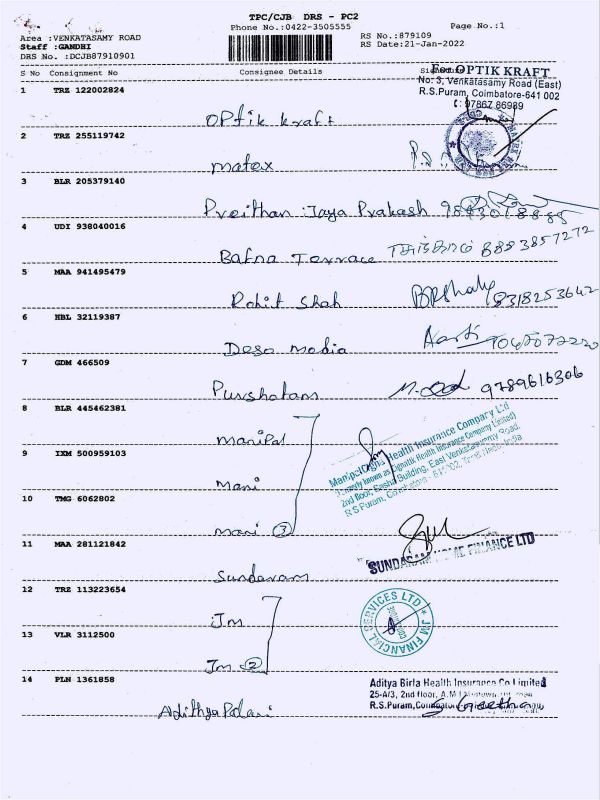 TPC/CJB DRS - PC2
Phone No.:0422-3505555
Page No.:1
Area :VENKATASAMY ROAD
RS No.:879109
Staff :GANDHI
RS Date:21-Jan-2022
DRS No. :DCJB87910901
S No Consignment No Consignee Details Signature
For OPTIK KRAFT
No. 3, Venkatasamy Road (East)
R.S.Puram, Coimbatore-641 002
97867 86989
1 TRZ 122002824
Optik kraft
2 TRZ 255119742
Matex
3 BLR 205379140
Preithan Jaya Prakash
4 UDI 938040016
Bafna Terrace 8883857272
5 MAA 941495479
Rohit Shah 8318253642
6 HBL 32119387
Deso Media Aarti
7 GDM 466509
Purshotam 9789616306
8 BLR 445462381
Manipal
9 IXM 500959103
Mani
10 TMG 6062802
Mani 3
ManipalCigna Health Insurance Company Ltd
(Formerly known as CignaTTK Health Insurance Company Limited)
2nd floor, Building, East Venkatasamy Road,
R S Puram, Coimbatore - 641002, India
11 MAA 281121842
Sundaram
SUNDARAM HOME FINANCE LTD
12 TRZ 113223654
Jm
13 VLR 3112500
Jm 2
JM FINANCIAL SERVICES LTD
14 PLN 1361858
Adithya
Aditya Birla Health Insurance Co Limited
25-A/3, 2nd floor,
R.S.Puram,
S Geetha